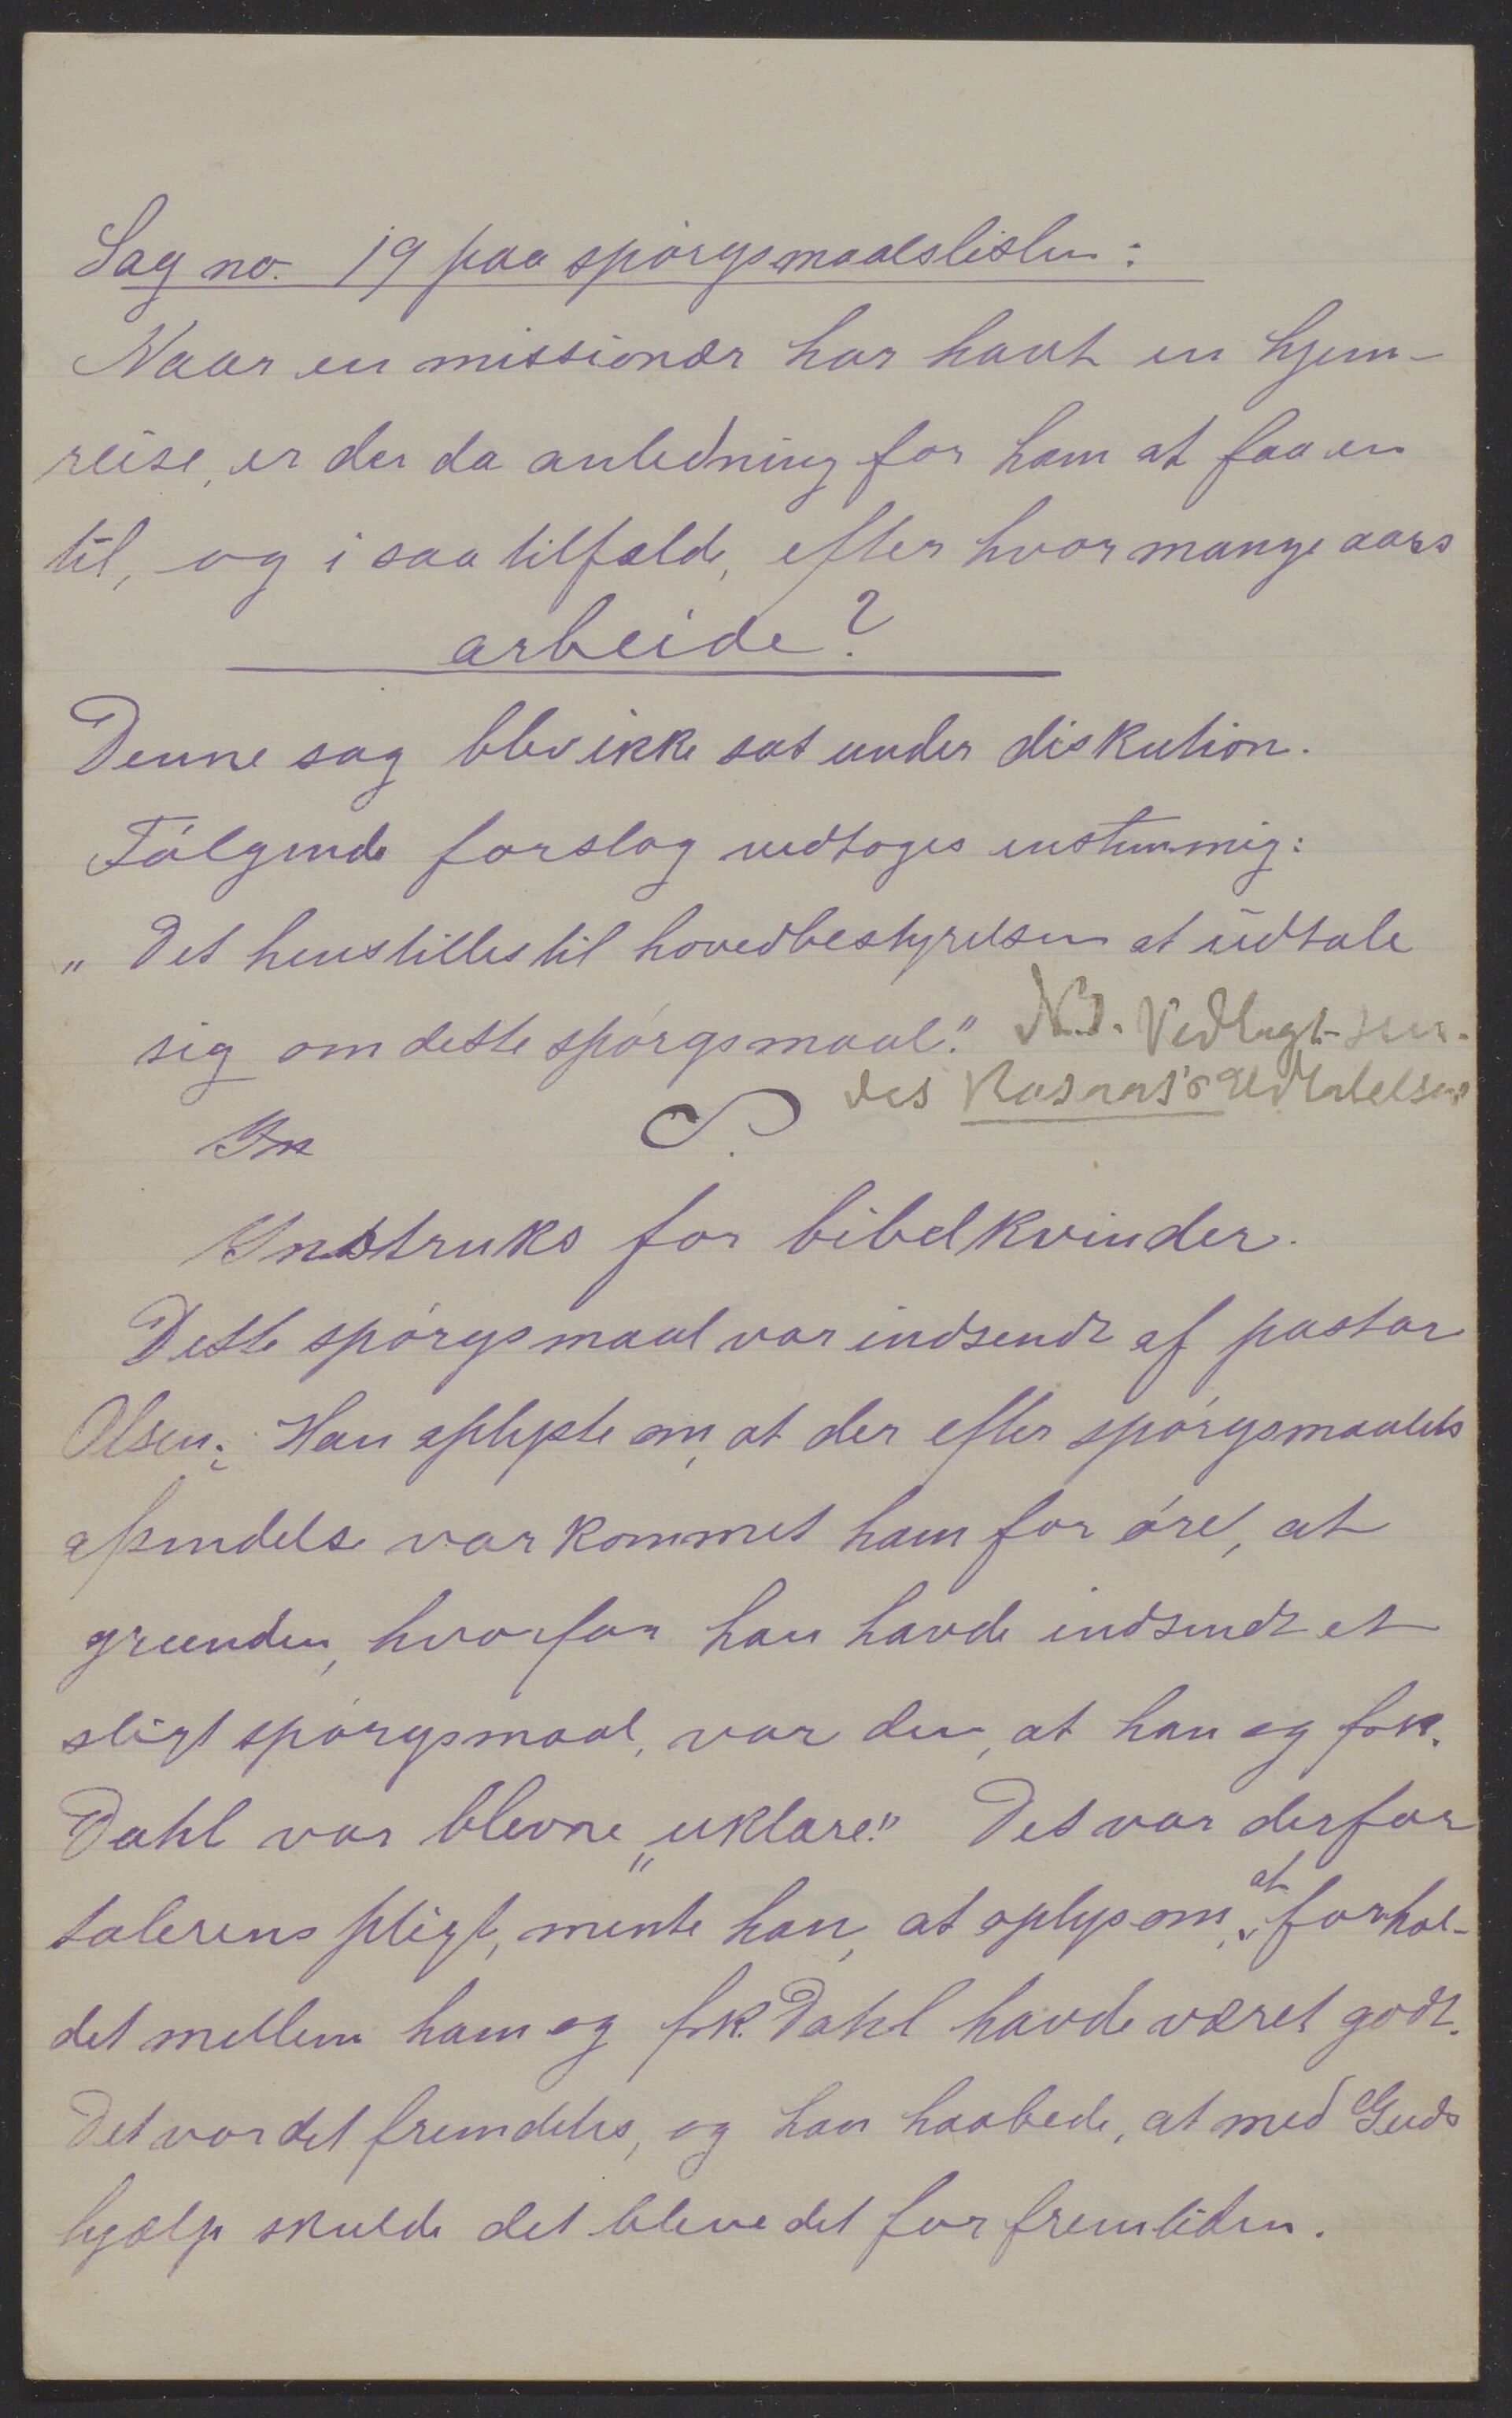 Sag no. 19 paa spórgsmaalslisten:
Naar en missionær har havt en hjem-
reise, er der da anledning for ham at faa en
til, og i saa tilfælde, efter hvor mange aars
arbeide?
Denne sag blev ikke sat under diskution.
Fólgende forslag vedtoges enstemmig:
„Det henstilles til hovedbestyrelsen at udtale
sig om dette spórgsmaal." N.B. Vedlagt sen-
des Rosaas's Udtalelser
In
Instruks for bibelkvinder.
Dette spórgsmaal var indsendt af pastor
Olsen; Han oplyste om, at der efter spórgsmaalets
afsendelse var kommet ham for óre, at
grunden, hvorfor han havde indsendt et
sligt spórgsmaal, var den, at han og frk.
Dahl var blevne „uklare." Det var derfor
talerens pligt, mente han, at oplyse om, at forhol-
det mellem ham og frk. Dahl havde været godt.
Det var det fremdeles, og han haabede, at med Guds
hjælp skulde det blive det for fremtiden.